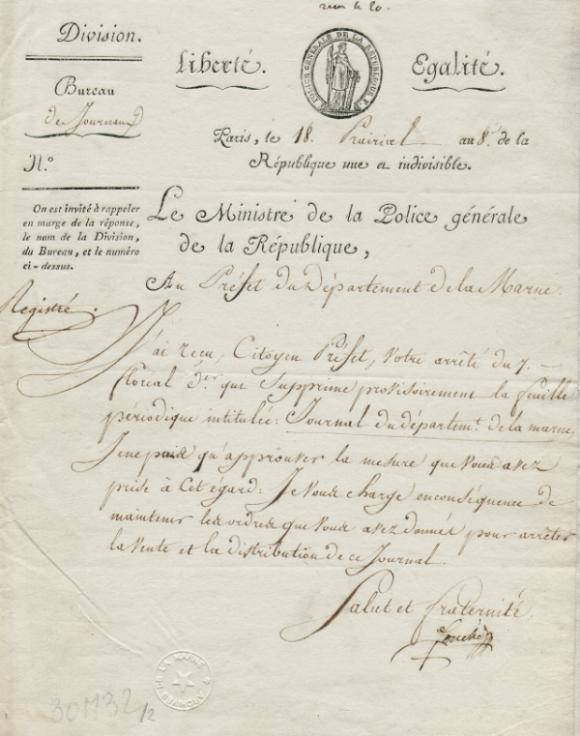 reçu le 20.
Division.
Bureau
de Journaux
N.º
On est invité à rappeler
en marge de la réponse,
le nom de la Division,
du Bureau, et le numéro
ci-dessus.
Liberté.
POLICE GÉNÉRALE DE LA RÉPUBLIQUE F.
Egalité.
Paris, le 18. Prairial au 8.e de la
République une et indivisible.
Le Ministre de la Police générale
de la République,
Au Préfet du département de la Marne.
Registré.
J'ai reçu, Citoyen Préfet, votre arrêté du 7.
floréal d.er que supprime provisoirement la feuille
périodique intitulée: Journal du départem.t de la marne,
Je ne puis qu'approuver la mesure que vous avez
prise à cet égard: Je vous charge en conséquence de
maintenir les ordres que vous avez donnés pour arrêter
la vente et la distribution de ce Journal.
Salut et fraternité.
Fouché
ARCHIVES DE LA MARNE
30M32/2